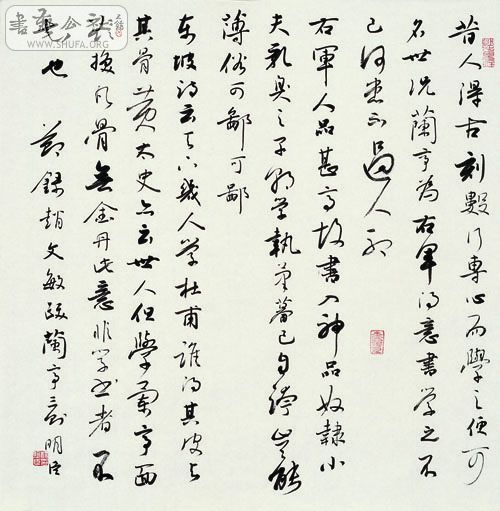 昔人得古刻數行專心而學之便可
名世況蘭亭為右軍得意書學之不
已何患不過人耶
右軍人品甚高故書入神品奴隸小
夫乳臭之子朝學執筆暮已自誇其能
薄俗可鄙可鄙
東坡詩云天下幾人學杜甫誰得其皮與
其骨黃太史亦云世人但學蘭亭面
欲換凡骨無金丹此意非學書者不
知也 節錄趙文敏跋蘭亭 明
WWW.SHUFA.ORG